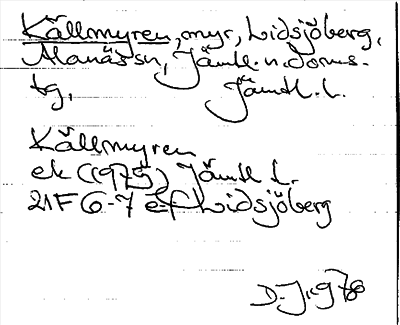 Källmyren, myr, Lidsjöberg,
Alanäs sn, Jämtl. n. doms-
tg, Jämtl. l.
Källmyren
ek (1975) Jämtl L.
21F 6-7 e-f Lidsjöberg
D.J. 1978